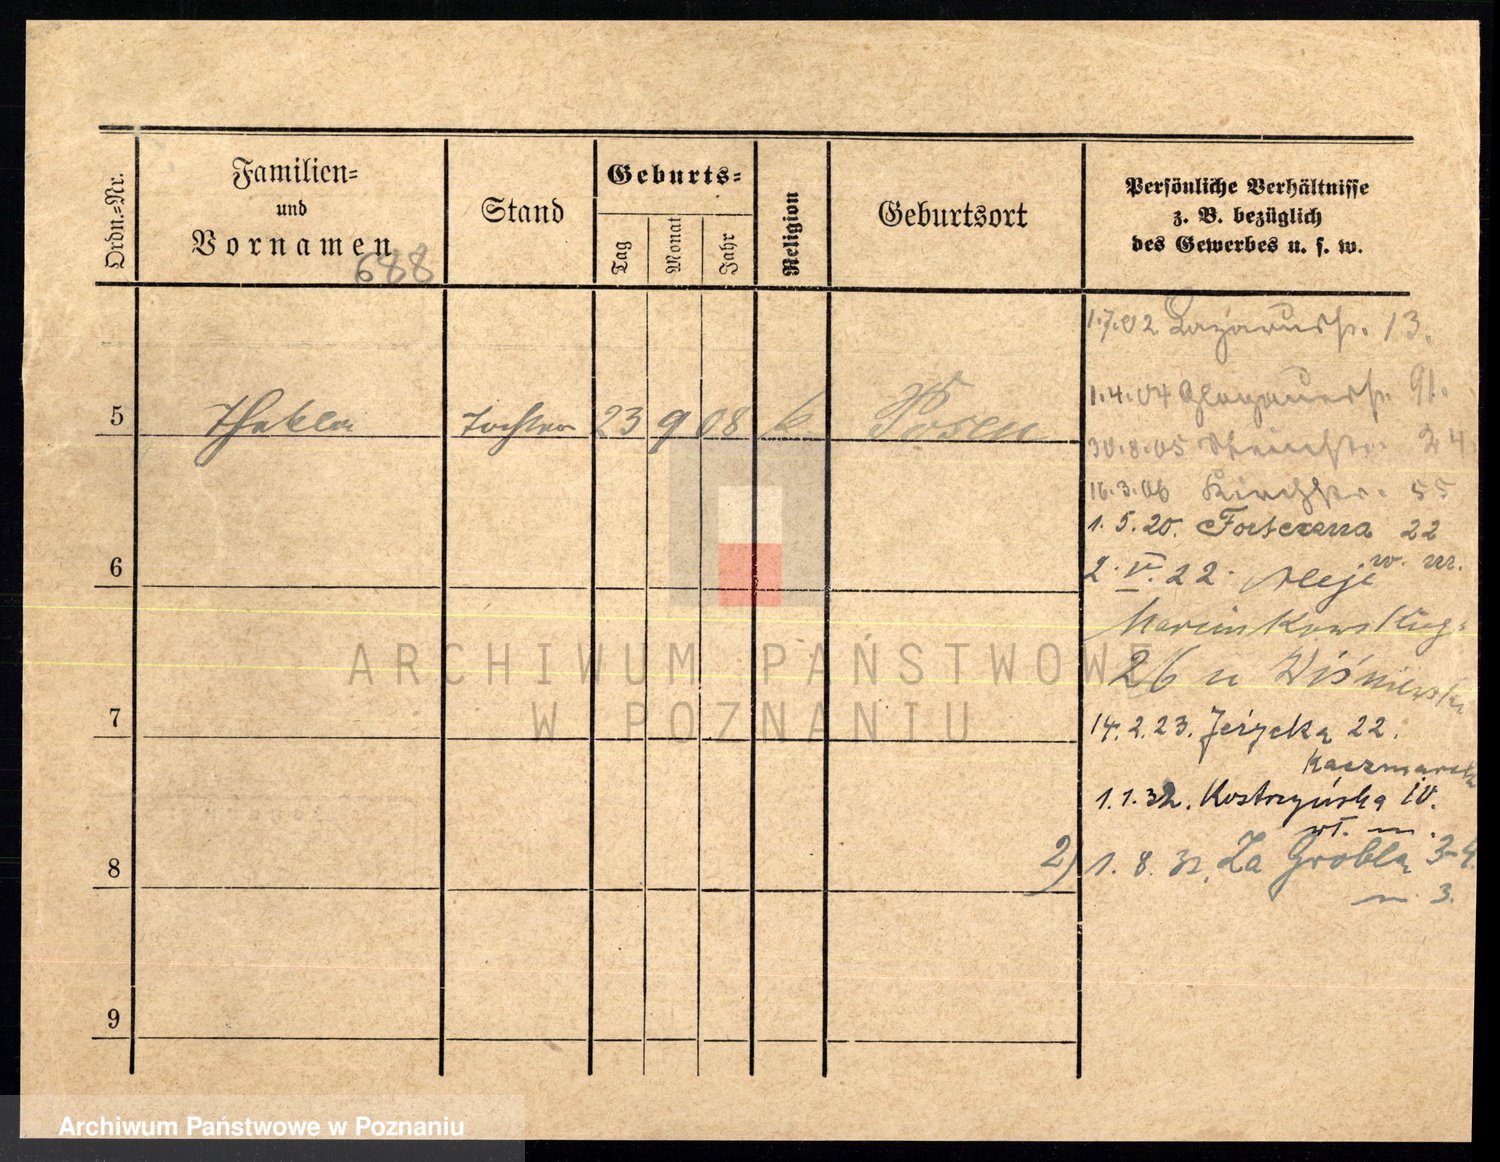 Ordn.=Nr.
Familien=
und
Vornamen
688
Stand
Geburts=
Tag
Monat
Jahr
Religion
Geburtsort
Persönliche Verhältnisse
z. B. bezüglich
des Gewerbes u. s. w.
1.7.02 Lazarusstr. 13.
1.4.04 Glogauerstr. 91.
5 Thekla Tochter 23 9 08 k Posen
30.8.05 24
16.3.06 Kirchstr. 55
1.5.20. Forteczna 22
w. m.
6
2.V.22. Aleje
Marcinkowskieg.
26 u Wiśniewski
7
14.2.23. Jeżycka 22.
Kaczmarek
1.1.32. Kostrzyńska 10.
m.
8
2) 1.8.32. Za Groblą 3-4
m 3.
9
ARCHIWUM PAŃSTWOWE
W POZNANIU
Archiwum Państwowe w Poznaniu